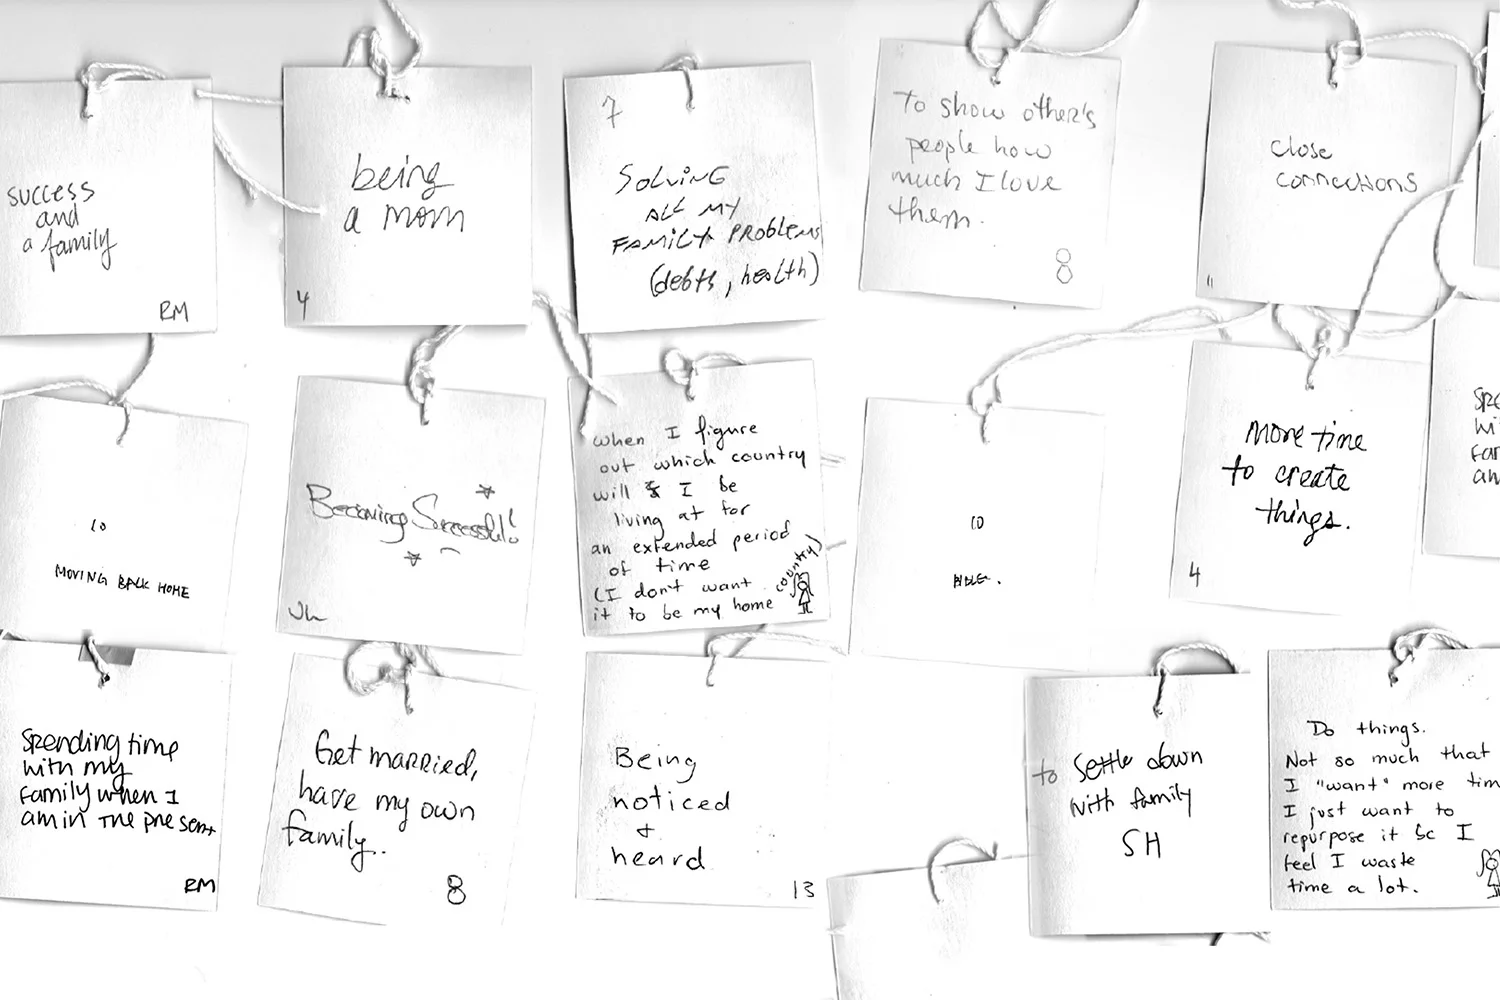 success
and
a family
RM
being
a mom
4
7
SOLVING
ALL MY
FAMILY PROBLEMS
(debts, health)
To show other's
people how
much I love
them.
8
close
connections
11
10
MOVING BACK HOME
Becoming Successful!
when I figure
out which country
will I be
living at for
an extended period
of time
(I don't want
it to be my home
country)
10
More time
to create
things.
4
Spending time
with my
family when I
am in the present
RM
Get married,
have my own
family.
8
Being
noticed
+
heard
13
to settle down
with family
SH
Do things.
Not so much that
I "want" more tim
I just want to
repurpose it bc I
feel I waste
time a lot.